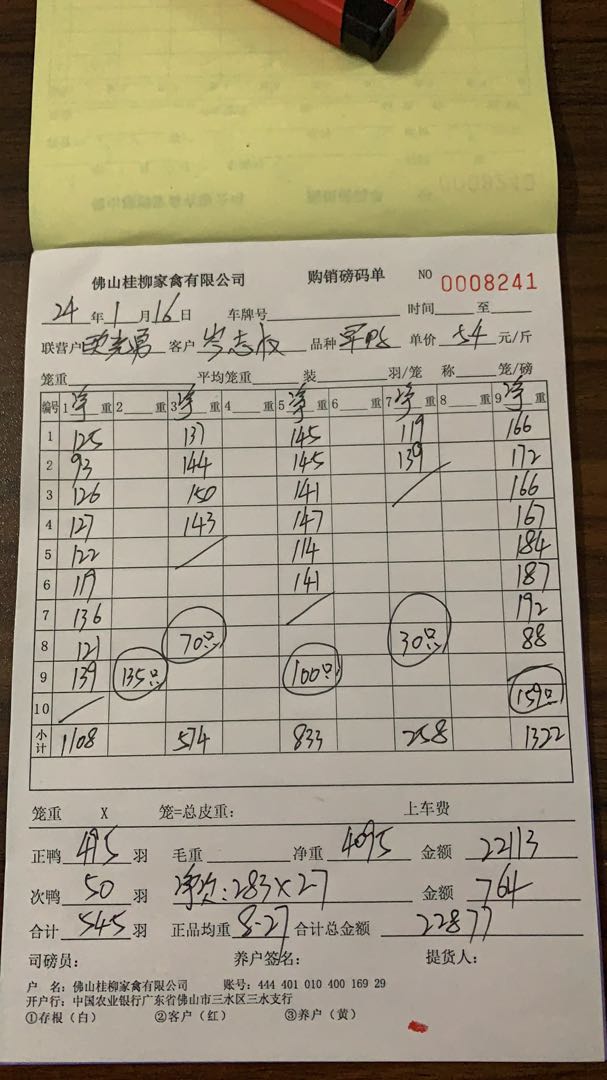 佛山桂柳家禽有限公司 购销磅码单 NO 0008241
24 年 1 月 16 日 车牌号 时间 至
联营户 欧光勇 客户 岑志权 品种 军鸭 单价 5.4 元/斤
笼重 平均笼重 装 羽/笼 称 笼/磅
编号 1 净 重 2 重 3 净 重 4 重 5 净 重 6 重 7 净 重 8 重 9 净 重
1 125 137 145 119 166
2 93 144 145 139 172
3 126 150 141 166
4 127 143 147 167
5 122 114 184
6 119 141 187
7 136 192
8 121 70只 30只 88
9 139 135只 100只
10 159只
小计 1108 574 833 258 1322
笼重 X 笼=总皮重: 上车费
正鸭 495 羽 毛重 净重 4095 金额 22113
次鸭 50 羽 净次:283×27 金额 764
合计 545 羽 正品均重 8.27 合计总金额 22877
司磅员: 养户签名: 提货人:
户 名: 佛山桂柳家禽有限公司 账号: 444 401 010 400 169 29
开户行: 中国农业银行广东省佛山市三水区三水支行
①存根(白) ②客户(红) ③养户(黄)